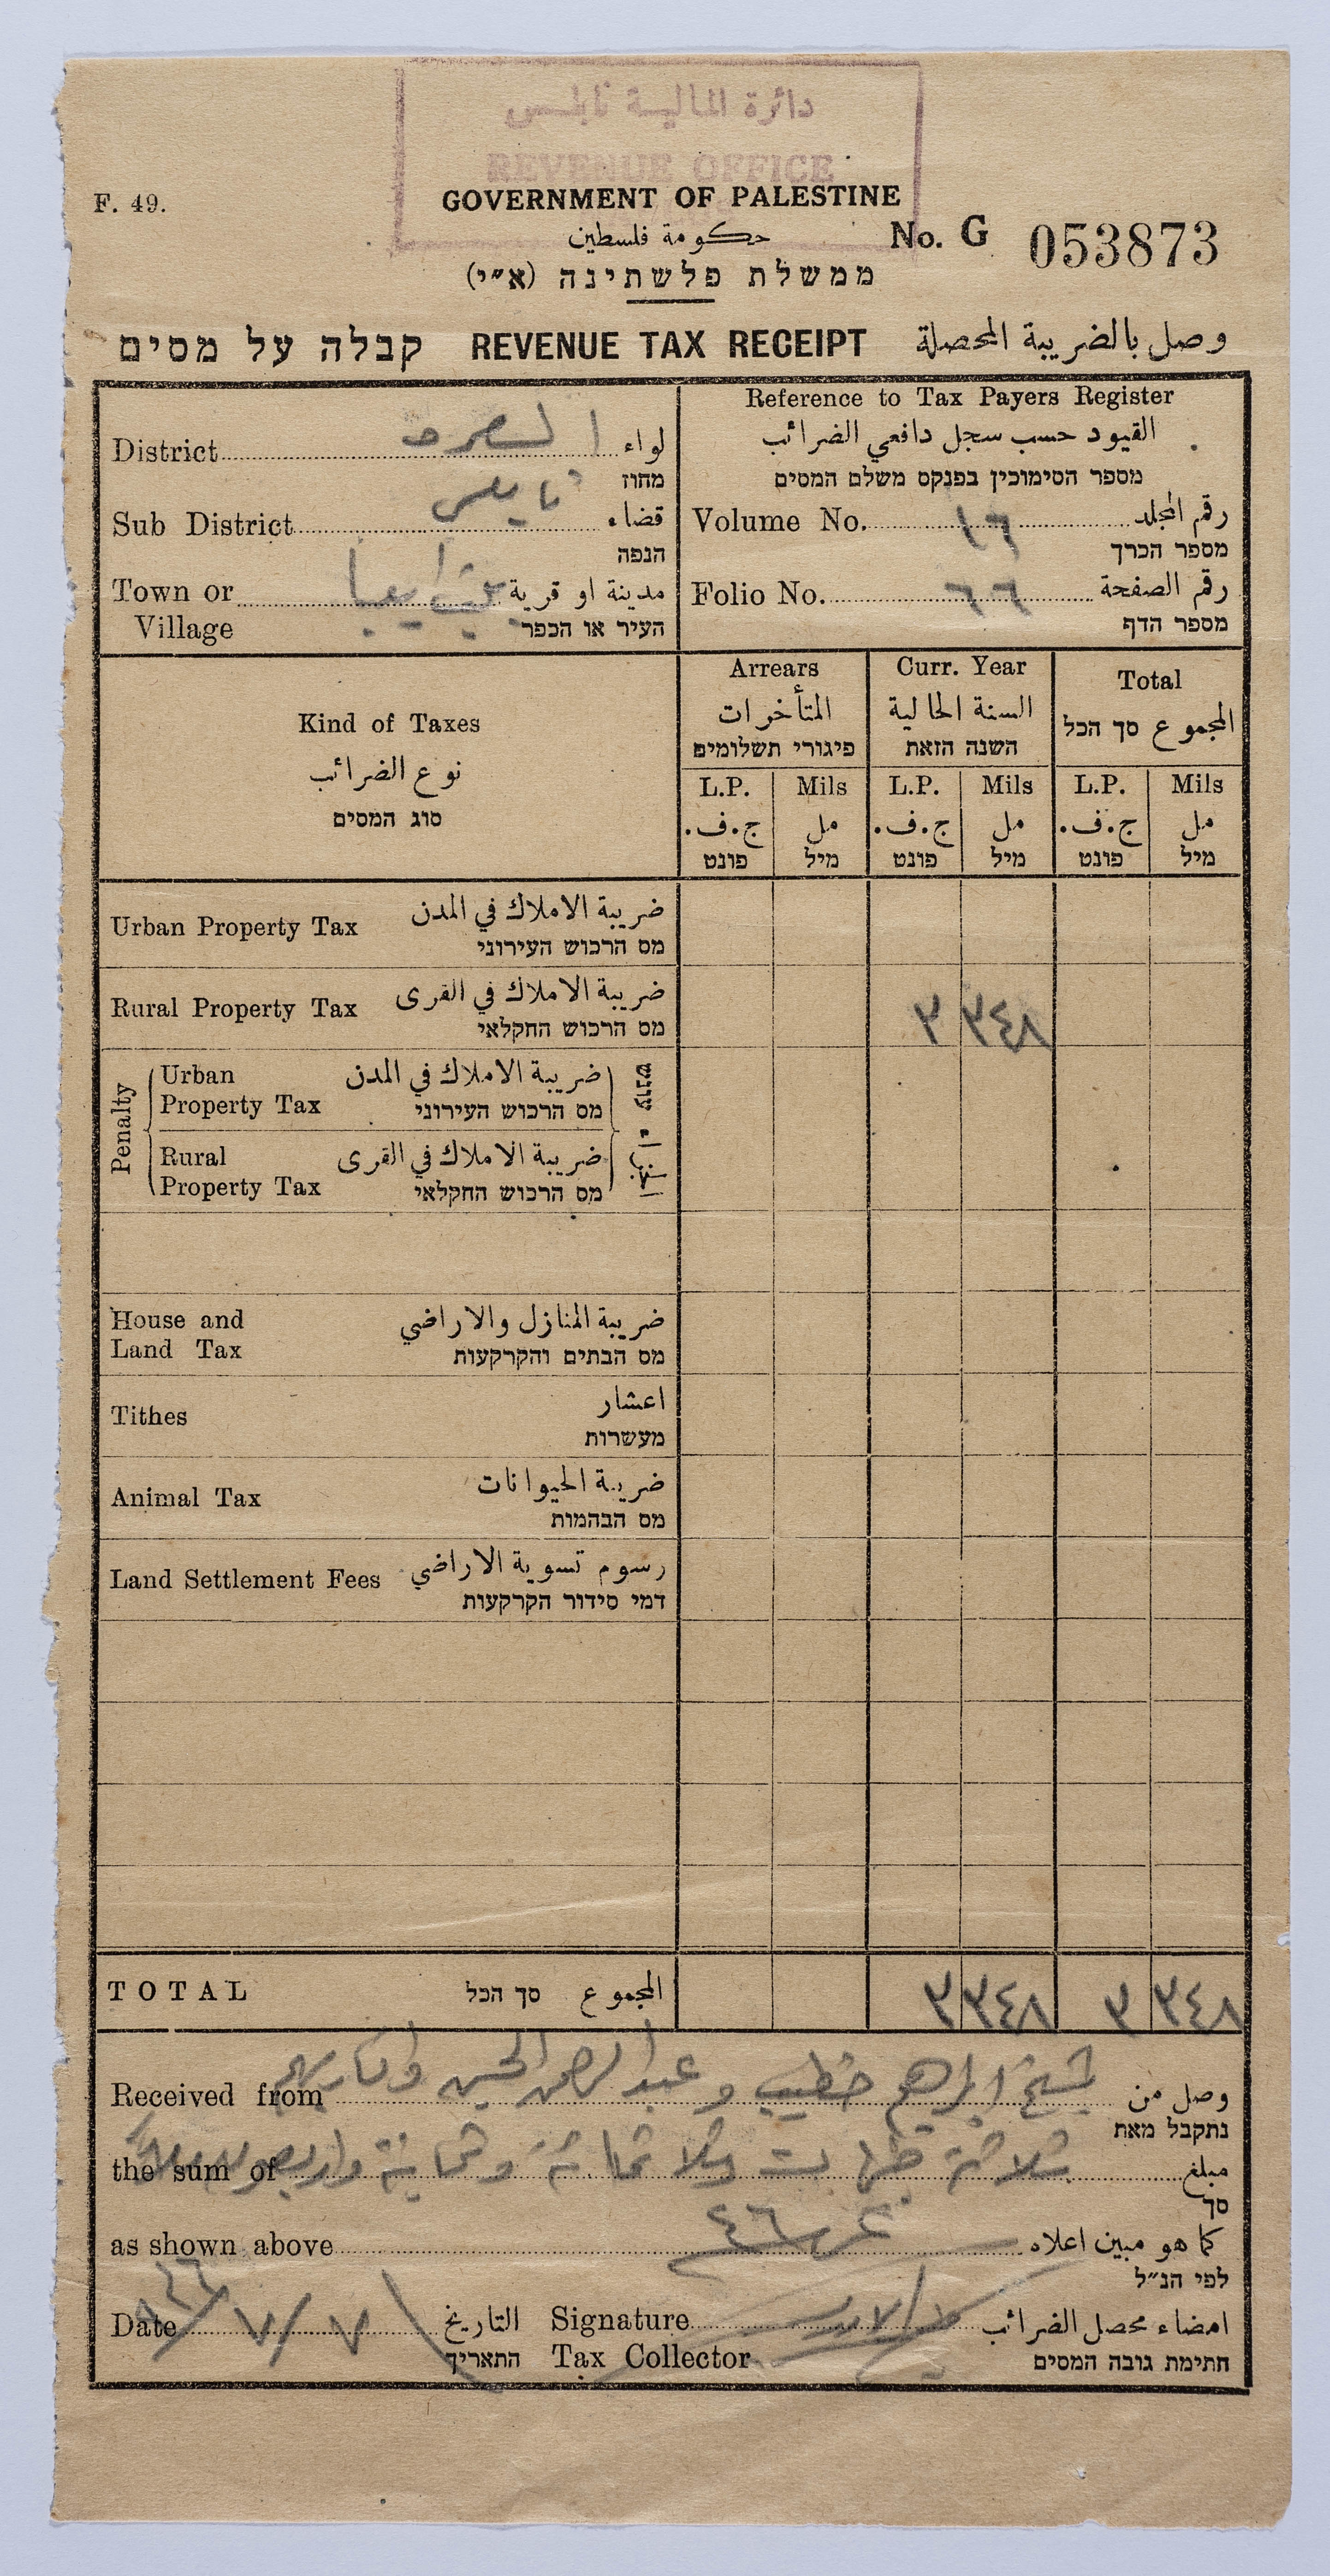 دائرة المالية نابلس
REVENUE OFFICE
F. 49.
GOVERNMENT OF PALESTINE
حكومة فلسطين
No. G 053873
ממשלת פלשתינה (א״י)
קבלה על מסים REVENUE TAX RECEIPT وصل بالضريبة المحصلة
District لواء
מחוז
Sub District نابلس قضاء
הנפה
Town or مدينة او قرية
Village העיר או הכפר
Reference to Tax Payers Register
القيود حسب سجل دافعي الضرائب
מספר הסימוכין בפנקס משלם המסים
Volume No. ١٦ رقم المجلد
מספר הכרך
Folio No. ٦٦ رقم الصفحة
מספר הדף
Kind of Taxes
نوع الضرائب
סוג המסים
Arrears
المتأخرات
פיגורי תשלומים
Curr. Year
السنة الحالية
השנה הזאת
Total
المجموع סך הכל
L.P. Mils L.P. Mils L.P. Mils
ج.ف. مل ج.ف. مل ج.ف. مل
פונט מיל פונט מיל פונט מיל
Urban Property Tax ضريبة الاملاك في المدن
מס הרכוש העירוני
Rural Property Tax ضريبة الاملاك في القرى
מס הרכוש החקלאי
٣ ٣٤٨
Penalty
Urban ضريبة الاملاك في المدن
Property Tax מס הרכוש העירוני
עונש
Rural ضريبة الاملاك في القرى
Property Tax מס הרכוש החקלאי
House and ضريبة المنازل والاراضي
Land Tax מס הבתים והקרקעות
Tithes اعشار
מעשרות
Animal Tax ضريبة الحيوانات
מס הבהמות
Land Settlement Fees رسوم تسوية الاراضي
דמי סידור הקרקעות
TOTAL סך הכל المجموع
٣ ٣٤٨ ٣ ٣٤٨
Received from ابراهيم خطيب و عبد الرحمن الحسين وصل من
נתקבל מאת
the sum of ثلاثة جنيهات وثلاثمائة وثمانية واربعون ملا مبلغ
סך
as shown above كما هو مبين اعلاه
לפי הנ״ל
Date ٧/٧ التاريخ
התאריך
Signature امضاء محصل الضرائب
Tax Collector חתימת גובה המסים